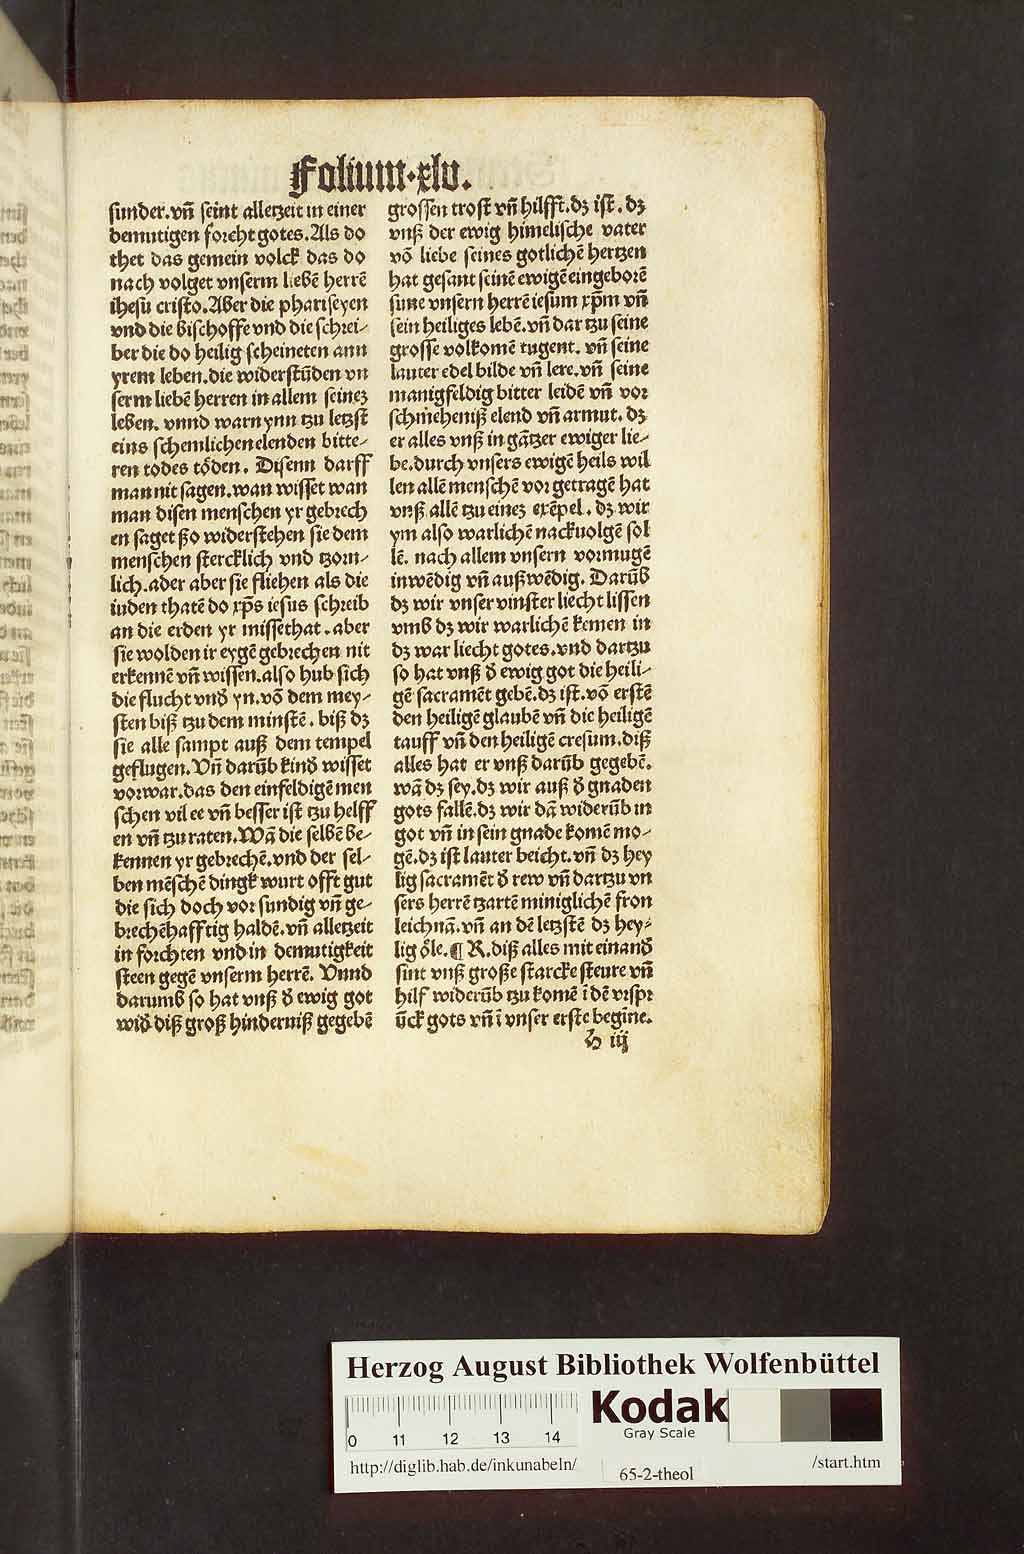 Folium.xlv.
sunder.vn̄ seint alletzeit in einer
demutigen forcht gotes.Als do
thet das gemein volck das do
nach volget vnserm liebē herrē
ihesu cristo.Aber die phariseyen
vnd die bischoffe vnd die schrei-
ber die do heilig scheineten ann
yrem leben.die widerstūden vn
serm liebē herren in allem seinez
leben. vnnd warn ynn tzu letzst
eins schemlichen elenden bitte-
ren todes töden. Disenn darff
man nit sagen.wan wisset wan
man disen menschen yr gebrech
en saget ßo widerstehen sie dem
menschen stercklich vnd tzorn-
lich.ader aber sie fliehen als die
iuden thatē do xp̄s iesus schreib
an die erden yr missethat.aber
sie wolden ir eygē gebrechen nit
erkennē vn̄ wissen.also hub sich
die flucht vnd̕ yn.vō dem mey-
sten biß tzu dem minstē. biß dz
sie alle sampt auß dem tempel
geflugen.Vn̄ darūb kind̕ wisset
vorwar.das den einfeldigē men
schen vil ee vn̄ besser ist tzu helff
en vn̄ tzu raten.Wā die selbē be-
kennen yr gebrechē.vnd der sel-
ben mēschē dingk wurt offt gut
die sich doch vor sundig vn̄ ge-
brechēhafftig haldē.vn̄ alletzeit
in forchten vnd in demutigkeit
steen gegē vnserm herrē. Vnnd
darumb so hat vnß d̕ ewig got
wid̕ diß groß hinderniß gegebē
grossen trost vn̄ hilfft.dz ist. dz
vnß der ewig himelische vater
vō liebe seines gotlichē hertzen
hat gesant seinē ewigē eingeborē
sune vnsern herrē iesum xp̄m vn̄
sein heiliges lebē.vn̄ dar tzu seine
grosse volkomē tugent. vn̄ seine
lauter edel bilde vn̄ lere.vn̄ seine
manigfeldig bitter leidē vn̄ vor
schmeheniß elend vn̄ armut. dz
er alles vnß in gātzer ewiger lie-
be.durch vnsers ewigē heils wil
len allē menschē vor getragē hat
vnß allē tzu einez exēpel. dz wir
ym also warlichē nackuolgē sol
lē. nach allem vnsern vormugē
inwēdig vn̄ außwēdig. Darūb
dz wir vnser vinster liecht lissen
vmb dz wir warlichē kemen in
dz war liecht gotes.vnd dartzu
so hat vnß d̕ ewig got die heili-
gē sacramēt gebē.dz ist.vō erstē
den heiligē glaubē vn̄ die heiligē
tauff vn̄ den heiligē cresum.diß
alles hat er vnß darūb gegebē.
wā dz sey.dz wir auß d̕ gnaden
gots fallē.dz wir dā widerūb in
got vn̄ in sein gnade komē mo-
gē.dz ist lauter beicht.vn̄ dz hey
lig sacramēt d̕ rew vn̄ dartzu vn
sers herrē tzartē miniglichē fron
leichnā.vn̄ an dē letzstē dz hey-
lig öle.¶ R.diß alles mit einand̕
sint vnß große starcke steure vn̄
hilf widerūb tzu komē ī dē vrspr
ūck gots vn̄ ī vnser erste begine.
h iij
Herzog August Bibliothek Wolfenbüttel
0 11 12 13 14
Kodak
Gray Scale
http://diglib.hab.de/inkunabeln/
65-2-theol
/start.htm